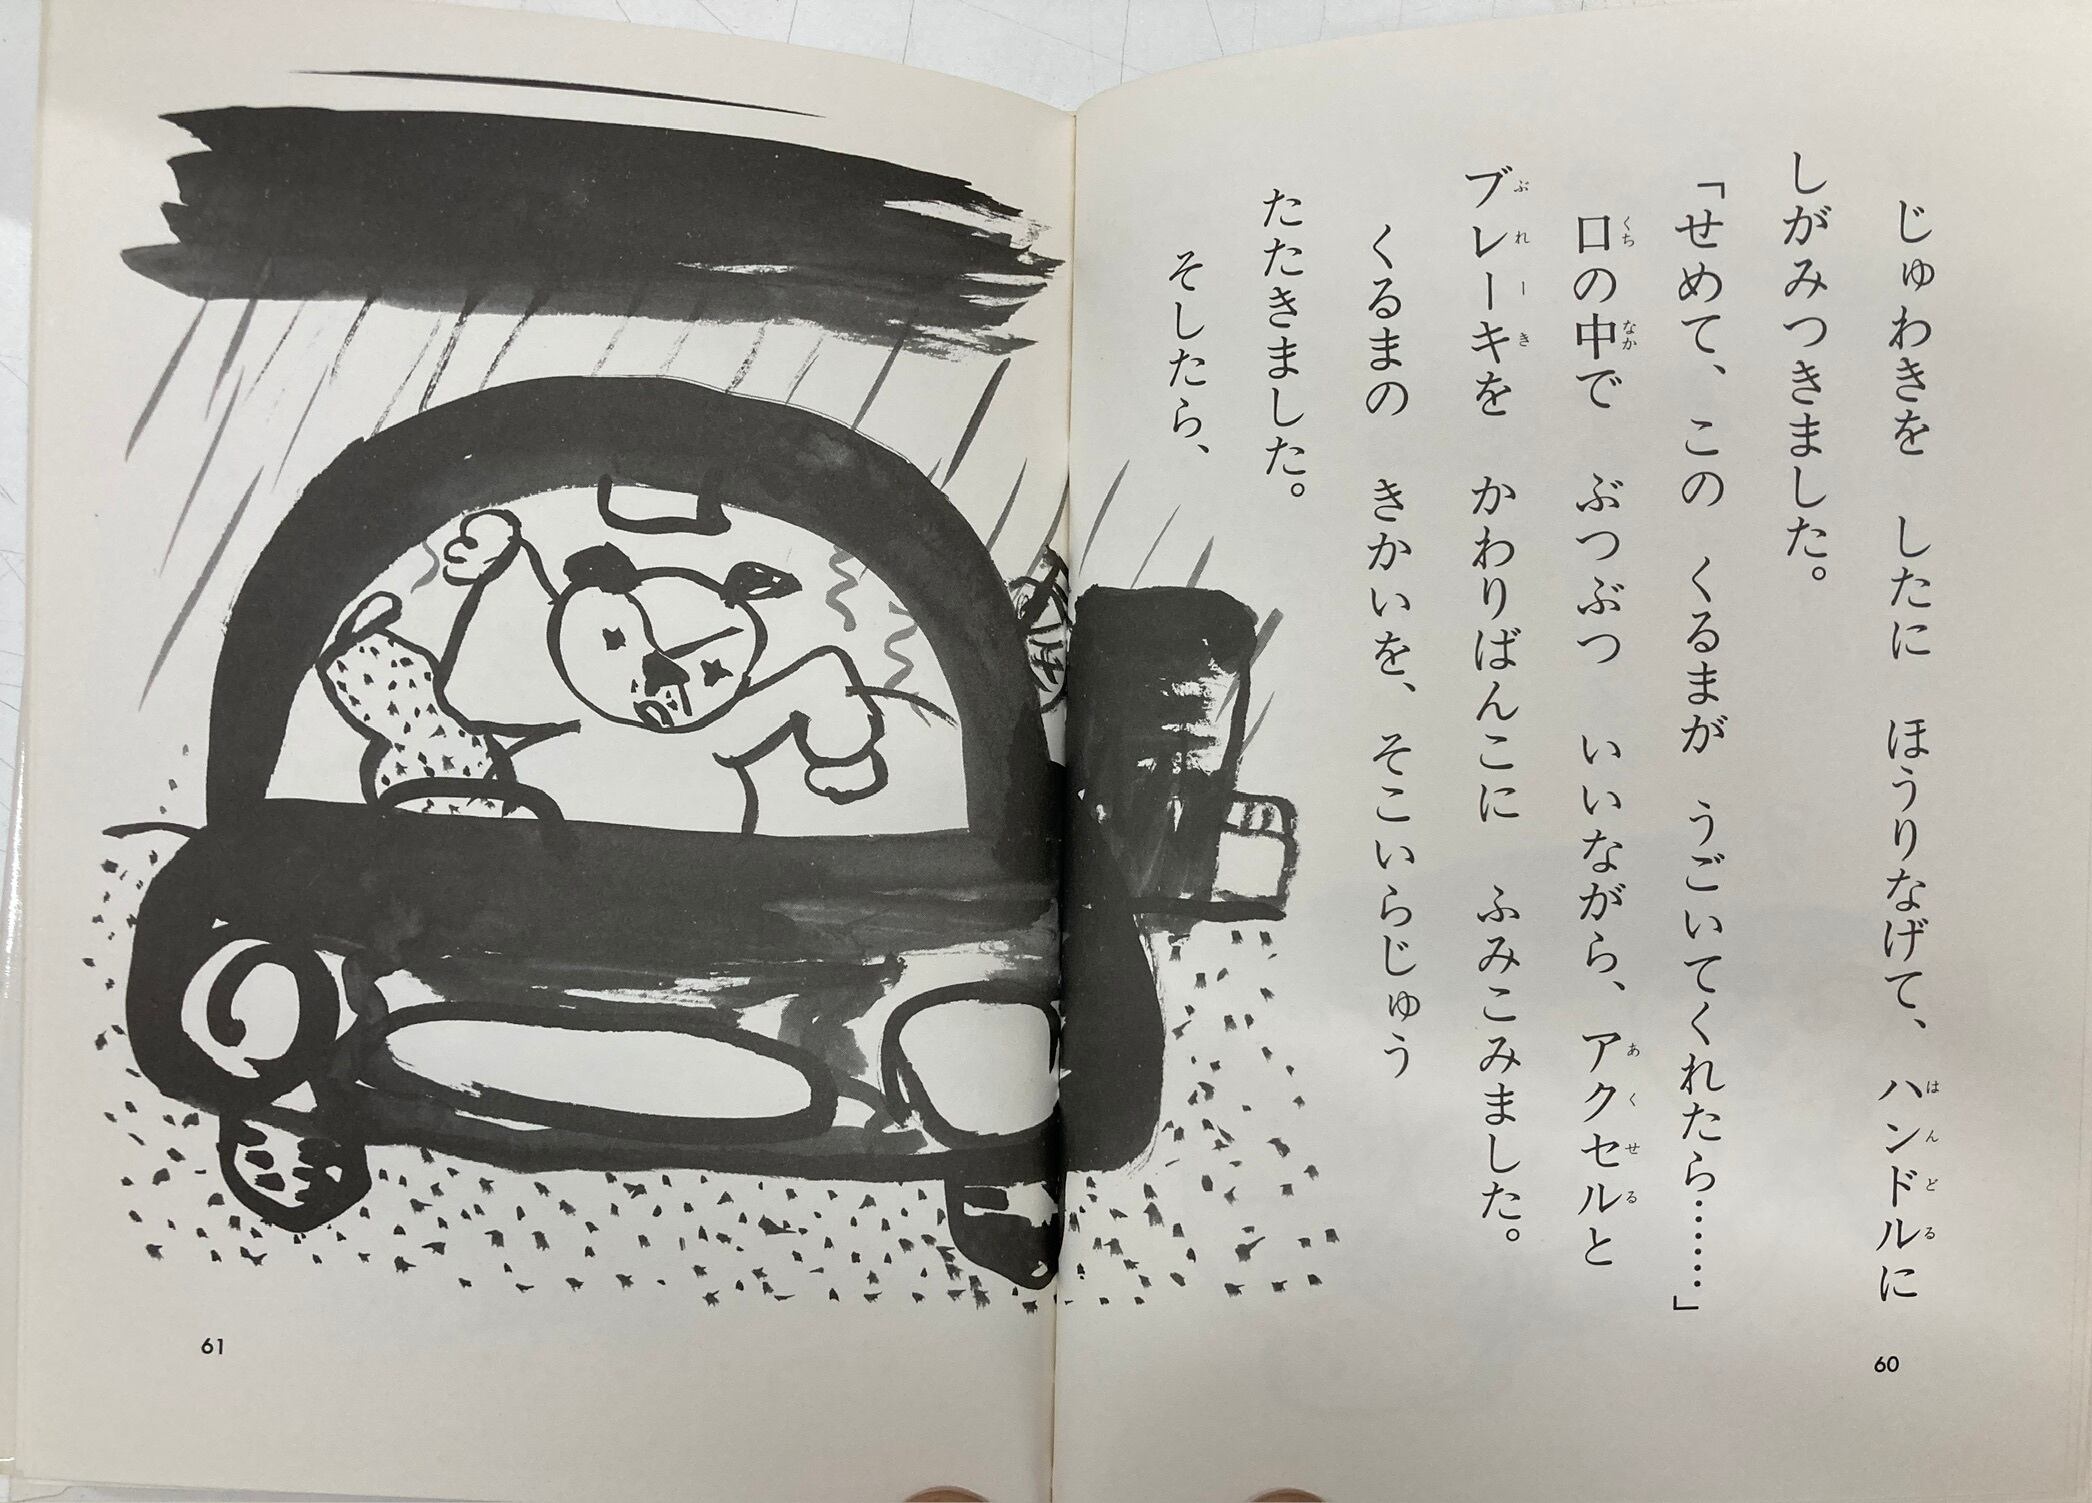 じゅわきを　したに　ほうりなげて、ハンドルに
しがみつきました。
「せめて、この　くるまが　うごいてくれたら……」
口の中で　ぶつぶつ　いいながら、アクセルと
ブレーキを　かわりばんこに　ふみこみました。
くるまの　きかいを、そこいらじゅう
たたきました。
そしたら、
60
61